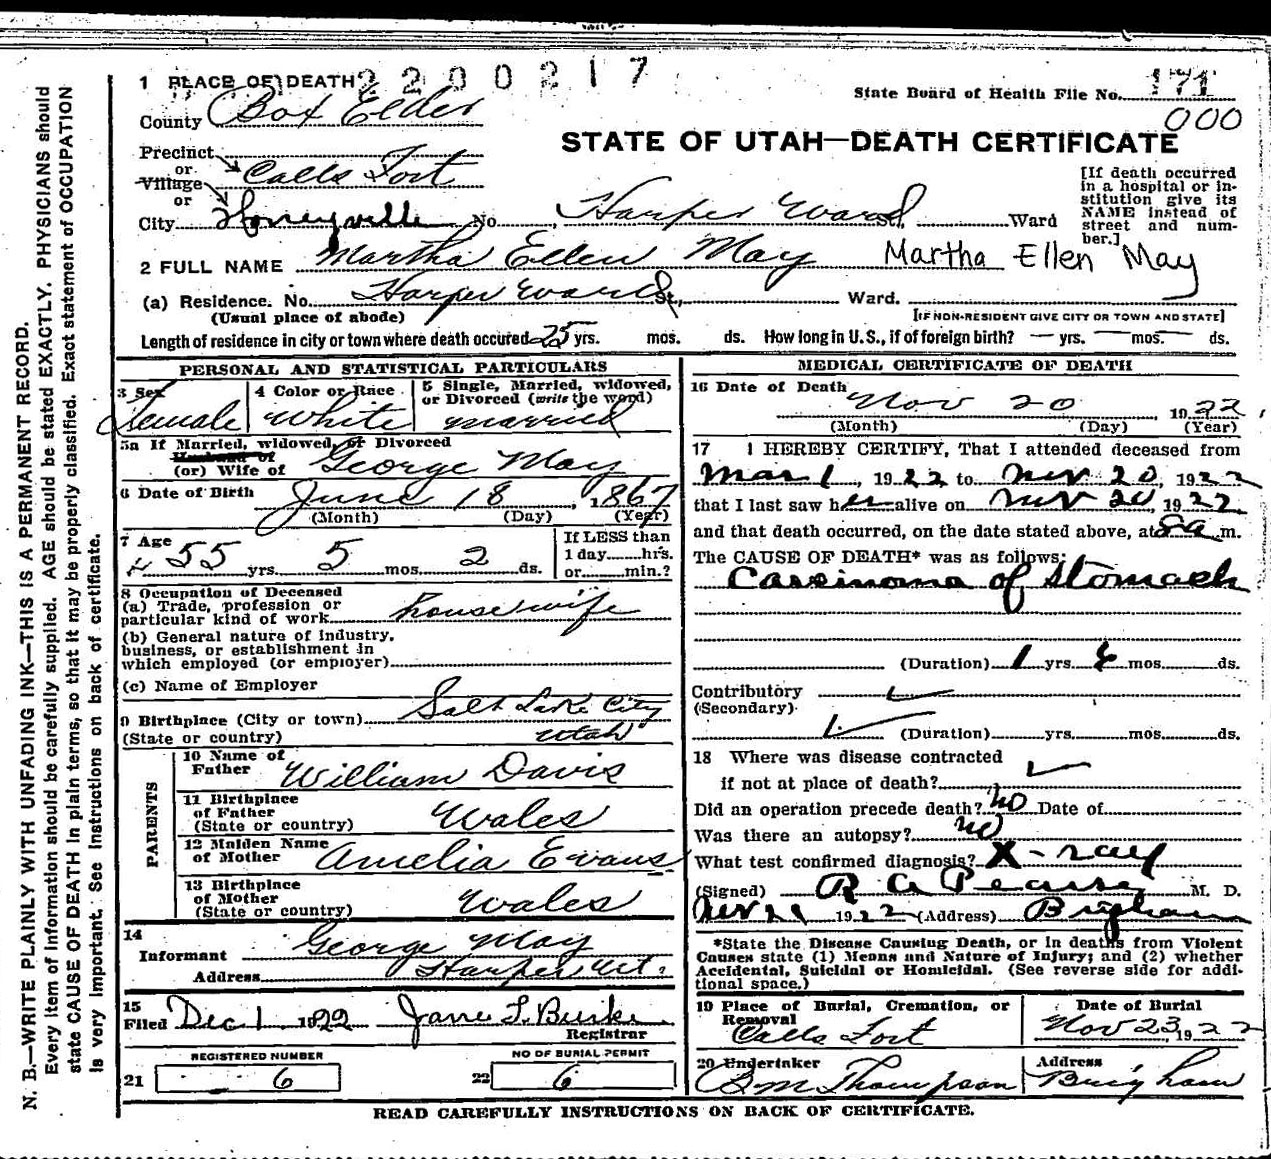 1 PLACE OF DEATH 2200217
State Board of Health File No. 171
000
County Box Elder
STATE OF UTAH—DEATH CERTIFICATE
Precinct
or
Village Calls Fort
or
City Honeyville No. Harper Ward St., Ward
[If death occurred
in a hospital or in-
stitution give its
NAME instead of
street and num-
ber.]
2 FULL NAME Martha Ellen May Martha Ellen May
(a) Residence. No. Harper Ward St., Ward.
(Usual place of abode)
[IF NON-RESIDENT GIVE CITY OR TOWN AND STATE]
Length of residence in city or town where death occured 25 yrs. mos. ds. How long in U.S., if of foreign birth? — yrs. — mos. — ds.
PERSONAL AND STATISTICAL PARTICULARS
3 Sex
Female
4 Color or Race
White
5 Single, Married, widowed,
or Divorced (write the word)
married
5a If Married, widowed, or Divorced
Husband of
(or) Wife of George May
6 Date of Birth June 18, 1867
(Month) (Day) (Year)
7 Age
55 yrs. 5 mos. 2 ds.
If LESS than
1 day......hrs.
or......min.?
8 Occupation of Deceased
(a) Trade, profession or
particular kind of work housewife
(b) General nature of Industry,
business, or establishment in
which employed (or employer)
(c) Name of Employer
9 Birthplace (City or town) Salt Lake City
(State or country) Utah
PARENTS
10 Name of
Father William Davis
11 Birthplace
of Father
(State or country) Wales
12 Maiden Name
of Mother Amelia Evans
13 Birthplace
of Mother
(State or country) Wales
14
Informant George May
Address Harper Ut.
15
Filed Dec 1 1922 James L. Burke
Registrar
REGISTERED NUMBER
21 6
NO OF BURIAL PERMIT
22 6
MEDICAL CERTIFICATE OF DEATH
16 Date of Death
Nov 20 1922
(Month) (Day) (Year)
17 I HEREBY CERTIFY, That I attended deceased from
Mar 1, 1922 to Nov 20, 1922
that I last saw her alive on Nov 20, 1922
and that death occurred, on the date stated above, at 8 a m.
The CAUSE OF DEATH* was as follows:
Carcinoma of Stomach
(Duration) 1 yrs. 6 mos. ds.
Contributory
(Secondary)
(Duration) yrs. mos. ds.
18 Where was disease contracted
if not at place of death?
Did an operation precede death? no Date of
Was there an autopsy? no
What test confirmed diagnosis? X-ray
(Signed) R A Pearse M. D.
Nov 21 1922 (Address) Brigham
*State the Disease Causing Death, or in deaths from Violent
Causes state (1) Means and Nature of Injury; and (2) whether
Accidental, Suicidal or Homicidal. (See reverse side for addi-
tional space.)
19 Place of Burial, Cremation, or
Removal
Calls Fort
Date of Burial
Nov 23, 1922
20 Undertaker
B M Thompson
Address
Brigham
READ CAREFULLY INSTRUCTIONS ON BACK OF CERTIFICATE.
N. B.—WRITE PLAINLY WITH UNFADING INK—THIS IS A PERMANENT RECORD.
Every item of information should be carefully supplied. AGE should be stated EXACTLY. PHYSICIANS should
state CAUSE OF DEATH in plain terms, so that it may be properly classified. Exact statement of OCCUPATION
is very important. See Instructions on back of certificate.